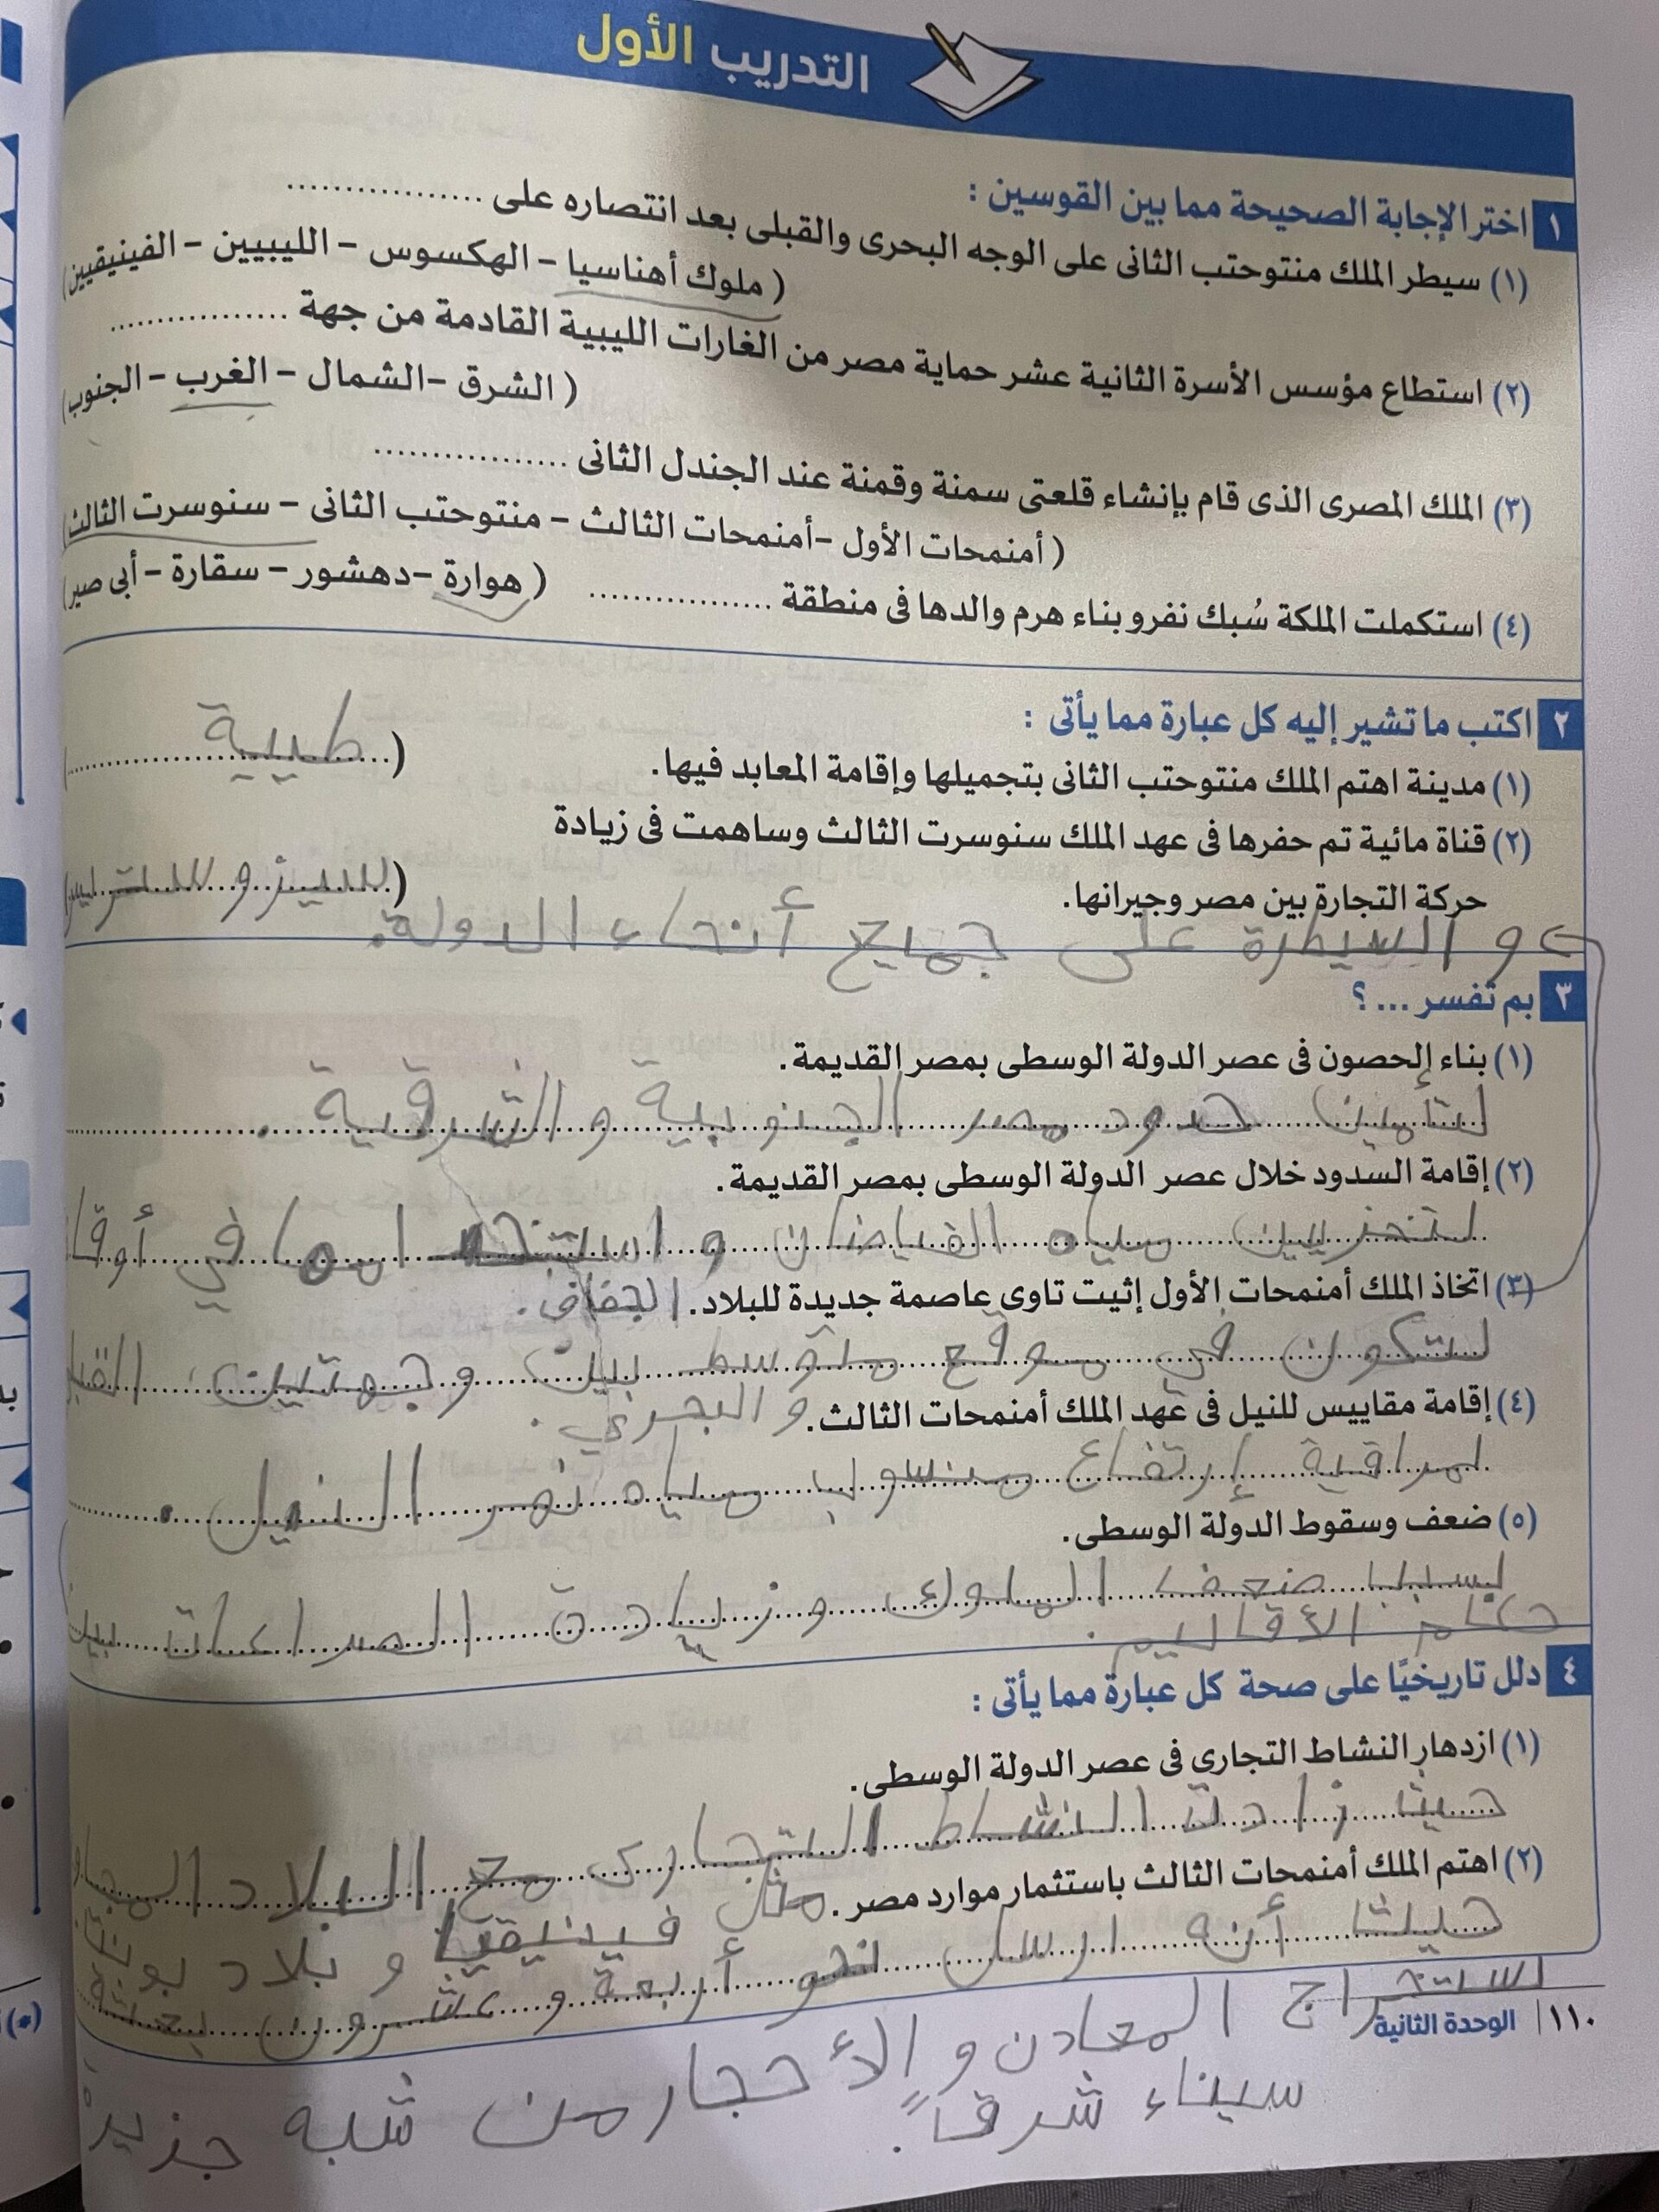 التدريب الأول
١ اختر الإجابة الصحيحة مما بين القوسين :
(١) سيطر الملك منتوحتب الثانى على الوجه البحرى والقبلى بعد انتصاره على ..................
( ملوك أهناسيا – الهكسوس – الليبيين – الفينيقيين)
(٢) استطاع مؤسس الأسرة الثانية عشر حماية مصر من الغارات الليبية القادمة من جهة ..................
( الشرق – الشمال – الغرب – الجنوب)
(٣) الملك المصرى الذى قام بإنشاء قلعتى سمنة وقمنة عند الجندل الثانى ..................
( أمنمحات الأول – أمنمحات الثالث – منتوحتب الثانى – سنوسرت الثالث)
(٤) استكملت الملكة سُبك نفرو بناء هرم والدها فى منطقة .................. ( هوارة – دهشور – سقارة – أبى صير)
٢ اكتب ما تشير إليه كل عبارة مما يأتى :
(١) مدينة اهتم الملك منتوحتب الثانى بتجميلها وإقامة المعابد فيها. ( طيبة
(٢) قناة مائية تم حفرها فى عهد الملك سنوسرت الثالث وساهمت فى زيادة
حركة التجارة بين مصر وجيرانها. ( سيزوستريس)
و السيطرة على جميع أنحاء الدولة.
٣ بم تفسر ... ؟
(١) بناء الحصون فى عصر الدولة الوسطى بمصر القديمة.
لتأمين حدود مصر الجنوبية و الشرقية .
(٢) إقامة السدود خلال عصر الدولة الوسطى بمصر القديمة.
لتخزيين مياه الفياضان و في
(٣) اتخاذ الملك أمنمحات الأول إثيت تاوى عاصمة جديدة للبلاد. الجفاف.
لتكون في موقع متوسط بين وجهتين
(٤) إقامة مقاييس للنيل فى عهد الملك أمنمحات الثالث. و البحري.
لمراقبة إرتفاع منسوب مياه نهر النيل .
(٥) ضعف وسقوط الدولة الوسطى.
بسبب ضعف الملوك و زيادة الصراعات بين
حكام الأقاليم .
٤ دلل تاريخيًا على صحة كل عبارة مما يأتى :
(١) ازدهار النشاط التجارى فى عصر الدولة الوسطى.
حيث زادت النشاط التجارى مع البلاد
(٢) اهتم الملك أمنمحات الثالث باستثمار موارد مصر. مثل فينيقيا و بلاد بونت
حيث أنه ارسل نحو أربعة و عشرون بعثة
استخراج المعادن و الأحجار من شبه جزيرة
سيناء شرقاً.
١١٠ | الوحدة الثانية